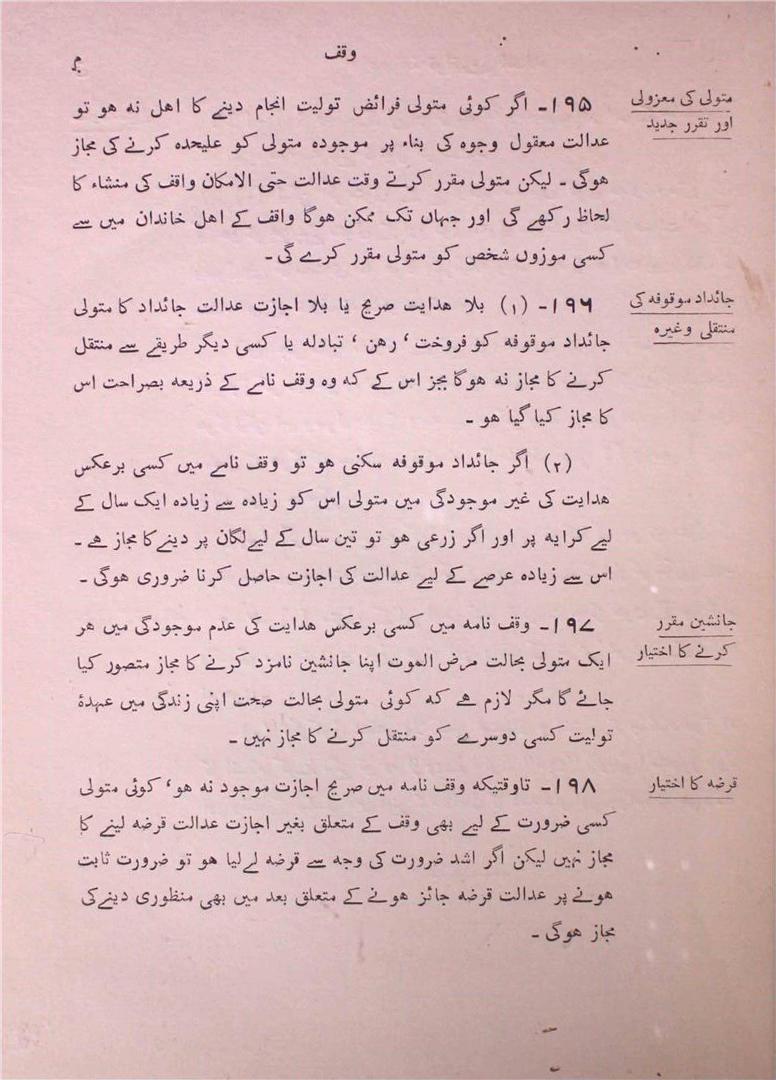 وقف
متولی کی معزولی
اور تقرر جدید
۱۹۵ - اگر کوئی متولی فرائض تولیت انجام دینے کا اهل نه هو تو
عدالت معقول وجوه کی بناء پر موجوده متولی کو علیحده کرنے کی مجاز
هوگی - لیکن متولی مقرر کرتے وقت عدالت حتی الامکان واقف کی منشاء کا
لحاظ رکھے گی اور جہاں تک ممکن هوگا واقف کے اهل خاندان میں سے
کسی موزوں شخص کو متولی مقرر کرے گی -
جائداد موقوفه کی
منتقلی وغیره
۱۹۶ - (۱) بلا هدایت صریح یا بلا اجازت عدالت جائداد کا متولی
جائداد موقوفه کو فروخت ، رهن ، تبادله یا کسی دیگر طریقے سے منتقل
کرنے کا مجاز نه هوگا بجز اس کے که وه وقف نامے کے ذریعه بصراحت اس
کا مجاز کیا گیا هو -
(۲) اگر جائداد موقوفه سکنی هو تو وقف نامے میں کسی برعکس
هدایت کی غیر موجودگی میں متولی اس کو زیاده سے زیاده ایک سال کے
لیے کرایه پر اور اگر زرعی هو تو تین سال کے لیے لگان پر دینے کا مجاز ہے -
اس سے زیاده عرصے کے لیے عدالت کی اجازت حاصل کرنا ضروری هوگی -
جانشین مقرر
کرنے کا اختیار
۱۹۷ - وقف نامه میں کسی برعکس هدایت کی عدم موجودگی میں هر
ایک متولی بحالت مرض الموت اپنا جانشین نامزد کرنے کا مجاز متصور کیا
جائے گا مگر لازم ہے که کوئی متولی بحالت صحت اپنی زندگی میں عہدۂ
تولیت کسی دوسرے کو منتقل کرنے کا مجاز نہیں -
قرضه کا اختیار
۱۹۸ - تاوقتیکه وقف نامه میں صریح اجازت موجود نه هو ، کوئی متولی
کسی ضرورت کے لیے بھی وقف کے متعلق بغیر اجازت عدالت قرضه لینے کا
مجاز نہیں لیکن اگر اشد ضرورت کی وجه سے قرضه لے لیا هو تو ضرورت ثابت
هونے پر عدالت قرضه جائز هونے کے متعلق بعد میں بھی منظوری دینے کی
مجاز هوگی -